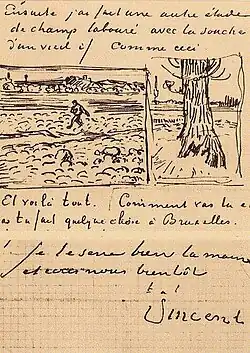 Ensuite j'ai fait une autre étude
de champ labouré avec la souche
d'un vieil if Comme ceci
Et voilà tout. Comment vas tu e
as tu fait quelque chose à Bruxelles.
je te serre bien la main
et écris nous bientôt
t. à t.
Vincent